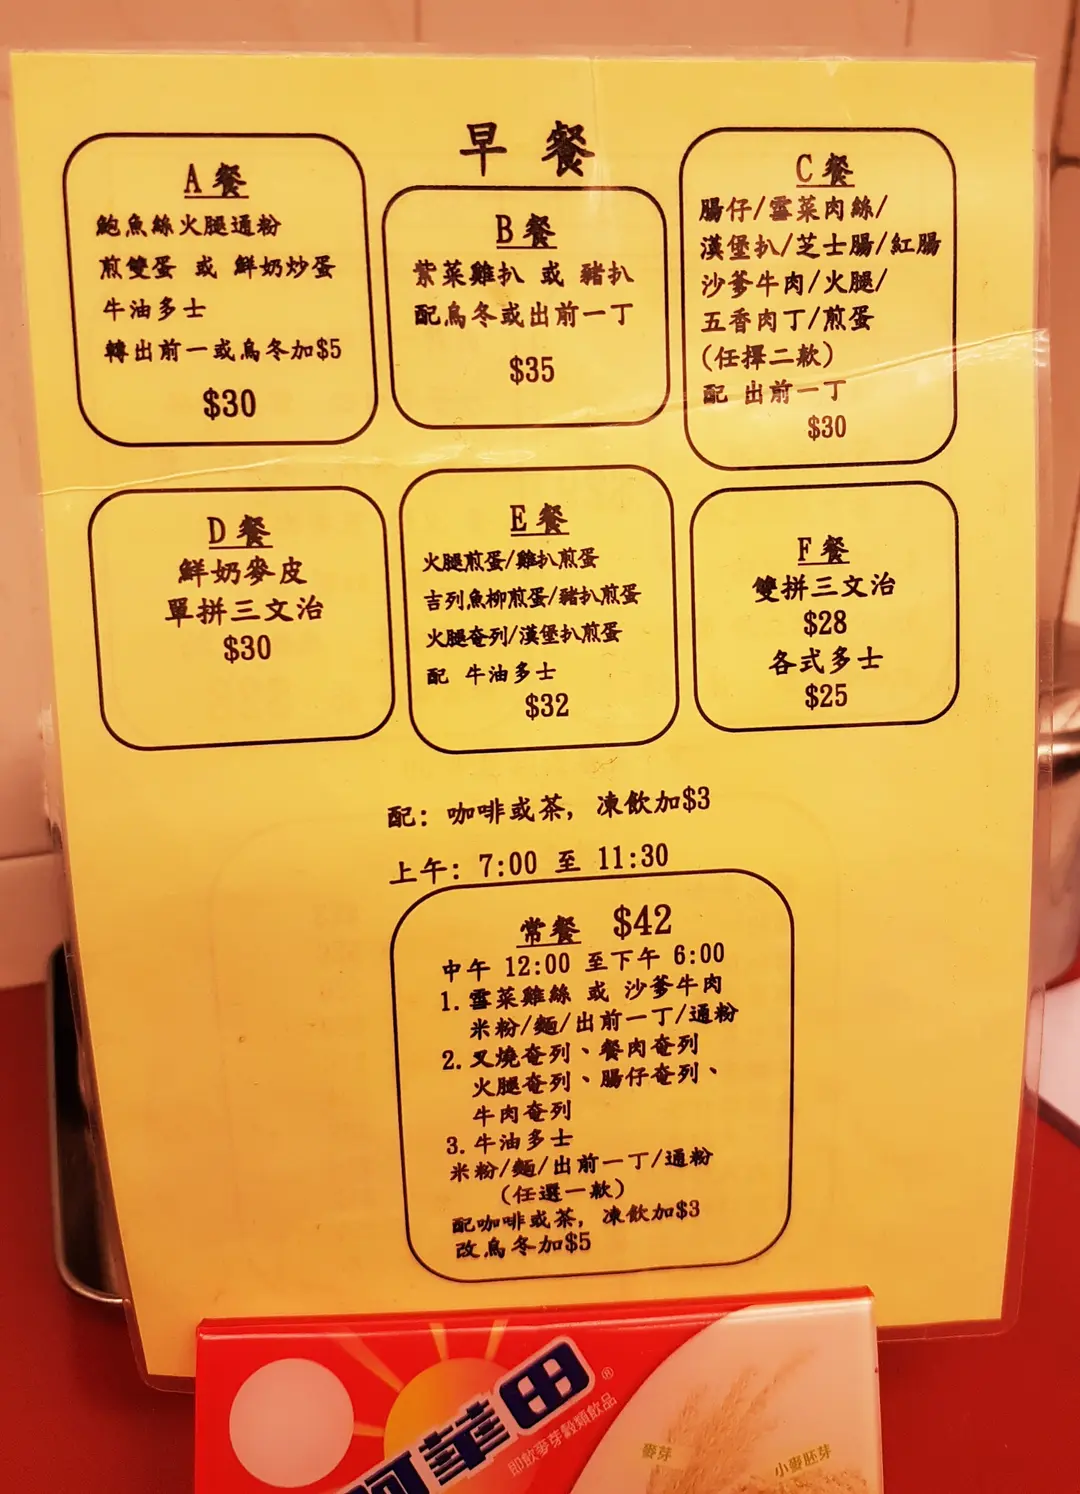 早餐
A餐
鮑魚絲火腿通粉
煎雙蛋 或 鮮奶炒蛋
牛油多士
轉出前一或烏冬加$5
$30
B餐
紫菜雞扒 或 豬扒
配烏冬或出前一丁
$35
C餐
腸仔/雪菜肉絲/
漢堡扒/芝士腸/紅腸
沙爹牛肉/火腿/
五香肉丁/煎蛋
(任擇二款)
配 出前一丁
$30
D餐
鮮奶麥皮
單拼三文治
$30
E餐
火腿煎蛋/雞扒煎蛋
吉列魚柳煎蛋/豬扒煎蛋
火腿奄列/漢堡扒煎蛋
配 牛油多士
$32
F餐
雙拼三文治
$28
各式多士
$25
配: 咖啡或茶, 凍飲加$3
上午: 7:00 至 11:30
常餐 $42
中午 12:00 至下午 6:00
1. 雪菜雞絲 或 沙爹牛肉
米粉/麵/出前一丁/通粉
2. 叉燒奄列、餐肉奄列
火腿奄列、腸仔奄列、
牛肉奄列
3. 牛油多士
米粉/麵/出前一丁/通粉
(任選一款)
配咖啡或茶, 凍飲加$3
改烏冬加$5
阿華田®
即飲麥芽穀類飲品
麥芽
小麥胚芽